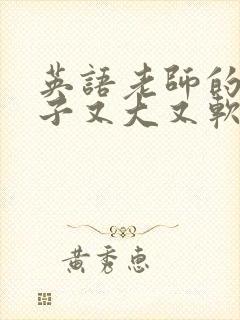 英語老師的
子又大又軟
黃秀惠